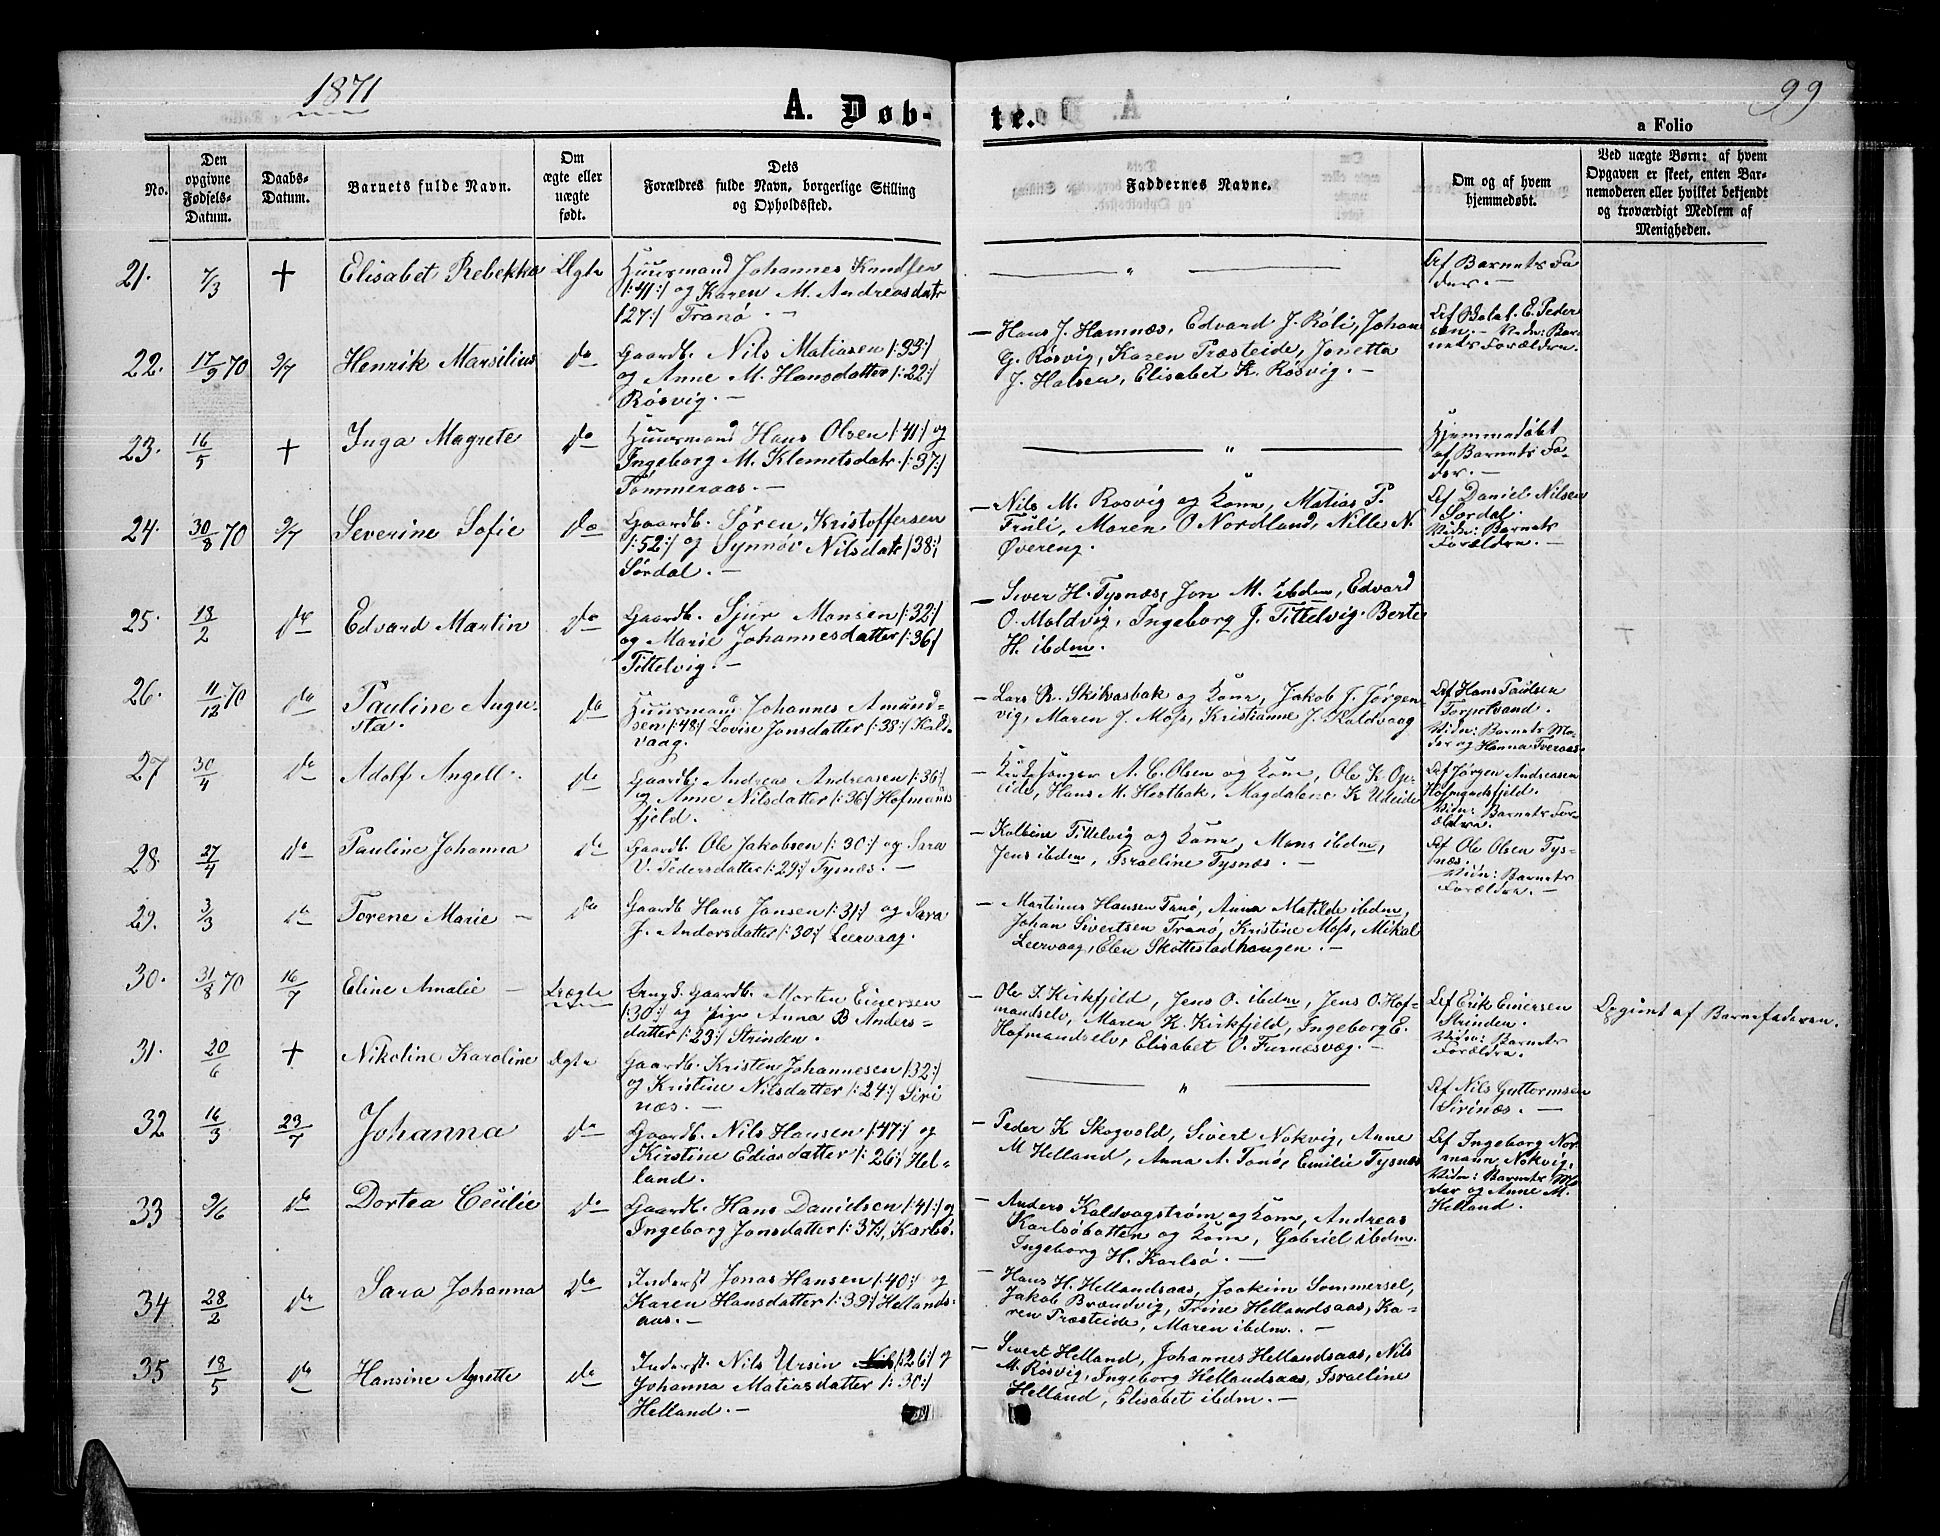 1871
99
A. Døb-
te.
a Folio
No.
Den
opgivne
Fødsels-
Datum.
Daabs-
Datum.
Barnets fulde Navn.
Om
ægte eller
uægte
født.
Dets
Forældres fulde Navn, borgerlige Stilling
og Opholdssted.
Faddernes Navne.
Om og af hvem
hjemmedøbt.
Ved uægte Børn: af hvem
Opgaven er skeet, enten Bar-
nemoderen eller hvilket bekjendt
og troværdigt Medlem af
Menigheden.
21. 7/3 + Elisabet Rebekka Ægte
Huusmand Johannes Knudsen
/:41:/ og Karen M. Andreasdatr
/27:/ Tranø. —
— " —
Af Barnets Fa-
der. —
22. 17/9 70 2/7 Henrik Marsilius do
Gaardb. Nils Matiasen /:33:/
og Anne M. Hansdatter /:22:/
Røsvig. —
— Hans J. Hamnæs, Edvard J. Røli, Johan
G. Røsvig, Karen Præsteide, Jonetta
J. Halsen, Elisabet K. Røsvig. —
Af Belat. E. Peder
sen. — Vidn: Bar-
nets Forældre.
23. 16/5 + Inga Magrete do
Huusmand Hans Olsen /:41:/ og
Ingeborg M. Klemetsdatr. /:37:/
Tømmeraas. —
— " —
Hjemmedøbt
af Barnets Fa-
der. —
24. 30/8 70 2/7 Severine Sofie do
Gaardb. Søren Kristoffersen
/:52:/ og Synnøv Nilsdatr /38:/
Sørdal. —
— Nils M. Rosvig og Kone, Matias P.
Fruli, Maren O Nordland, Nille N.
Øvereng.
Af Daniel Nilsen
Sørdal.
Vidn: Barnets
Forældre. —
25. 13/2 do Edvard Martin do
Gaardb. Sjur Monsen /:32:/
og Marie Johannesdatter /:36/
Tittelvig. —
— Siver H. Tysnæs, Jon M. ibdm, Edvard
O. Moldvig, Ingeborg J. Tittelvig. Berte
H. ibdm.
26. 11/12 70 do Pauline Augu-
sta. do
Huusmand Johannes Amund-
sen /:48:/ Lovise Jonsdatter /:38:/ Kald-
vaag.
— Lars R. Skikvasbak og Kone, Jakob J. Jørgen
vig, Maren J. Moss, Kristianne J. Kaldvaag
Af Hans Paulsen
Torpetvand.
Vidn: Barnets Mo-
der og Hanna Tveraas.
27 30/4 do Adolf Angell. do
Gaardb. Andreas Andreasen /:36:/
og Anne Nilsdatter /:36/ Hofmands
fjeld.
— Kirkesanger A. C. Olsen og Kone, Ole K Op-
eide, Hans M. Hestbak, Magdalene K Udeide
Af Jørgen Andreasen
Hofmandsfjeld.
Vidn: Barnets For-
ældre.
28. 27/4 do Pauline Johanna do
Gaardb. Ole Jakobsen /:30:/ og Sara
V. Pedersdatter /:29:/ Tysnæs. —
— Kolbine Tittelvig og Kone, Mons ibdm,
Jens ibdm, Israeline Tysnæs. —
Af Ole Olsen Tys-
næs.
Vidn: Barnets
Forældre. —
29. 3/3 do Torene Marie — do
Gaardb Hans Jansen /:31:/ og Sara
J. Andorsdatter /:30:/ Leervaag.
— Martinus Hansen Tanø, Anna Matilde ibdm,
Johan Sivertsen Tranø, Kristine Moss, Mikal
Leervaag, Elen Skottestadhaugen. —
30. 31/8 70 16/7 Eline Amalie — Uægte
Ungk. Gaardb. Morten Einersen
/:30:/ og Pige Anna B Anders-
datter /:23:/ Strinden.
— Ole I. Kirkfjeld, Jens O. ibdm, Jens O. Hof-
mandselv, Maren K. Kirkfjeld, Ingeborg E.
Hofmandselv, Elisabet O. Furnesvæg. —
Af Erik Einersen
Strinden.
Vidn: Barnets
Forældre.
Opgivet af Barnefaderen.
31. 20/6 + Nikoline Karoline Ægte
Gaardb. Kristen Johannesen /32:/
og Kristine Nilsdatter /:24:/ Siri
næs. —
— " —
Af Nils Guttormsen
Sirinæs. —
32 16/3 23/7 Johanna do
Gaardb. Nils Hansen /:47:/ og
Kirstine Ediasdatter /:26:/ Hel-
land.
— Peder K Skogvold, Sivert Nokvig, Anne
M Helland, Anna A. Tanø, Emilie Tysnæs
Af Ingeborg Nor
mann, Nokvig,
Vidn: Barnets Mo
der og Anne M.
Helland.
33 2/6 do Dortea Cecilie do
Gaardb. Hans Danielsen /:41:/ og
Ingeborg Jonsdatter /:37:/, Karlsø.
— Anders Kaldvagstrøm og Kone, Andreas
Karlsøbotten og Kone, Gabriel ibdm.
Ingeborg H. Karlsø. —
34 28/2 do Sara Johanna do
Inderst Jonas Hansen /:40:/ og
Karen Hansdatter /:39:/ Hellands-
aas. —
— Hans H. Hellandsaas, Joakim Sommersel,
Jakob Brændvig, Trine Hellandsaas, Ka-
ren Præsteide, Maren ibdm. —
35 18/5 do Hansine Agrette do
Inderst. Nils Ursin /:26:/ og
Johanna Matiasdatter /:30:/
Helland. —
— Sivert Helland, Johannes Hellandsaas, Nils
M. Røsvig, Ingeborg Hellandsaas, Israeline
Helland, Elisabet ibdm. —